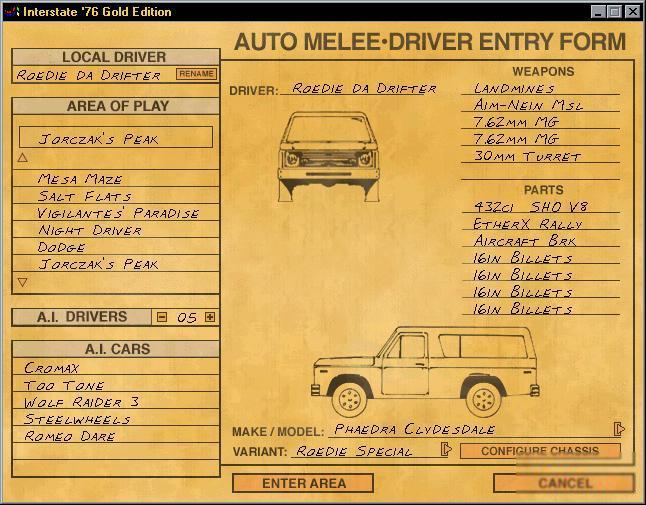 Interstate '76 Gold Edition
AUTO MELEE•DRIVER ENTRY FORM
LOCAL DRIVER
ROEDIE DA DRIFTER
RENAME
AREA OF PLAY
JORCZAK'S PEAK
MESA MAZE
SALT FLATS
VIGILANTES' PARADISE
NIGHT DRIVER
DODGE
JORCZAK'S PEAK
A.I. DRIVERS
05
A.I. CARS
CROMAX
TOO TONE
WOLF RAIDER 3
STEELWHEELS
ROMEO DARE
DRIVER: ROEDIE DA DRIFTER
WEAPONS
LANDMINES
AIM-NEIN MSL
7.62MM MG
7.62MM MG
30MM TURRET
PARTS
432CI SHO V8
ETHERX RALLY
AIRCRAFT BRK
16IN BILLETS
16IN BILLETS
16IN BILLETS
16IN BILLETS
MAKE / MODEL: PHAEDRA CLYDESDALE
VARIANT: ROEDIE SPECIAL
CONFIGURE CHASSIS
ENTER AREA
CANCEL